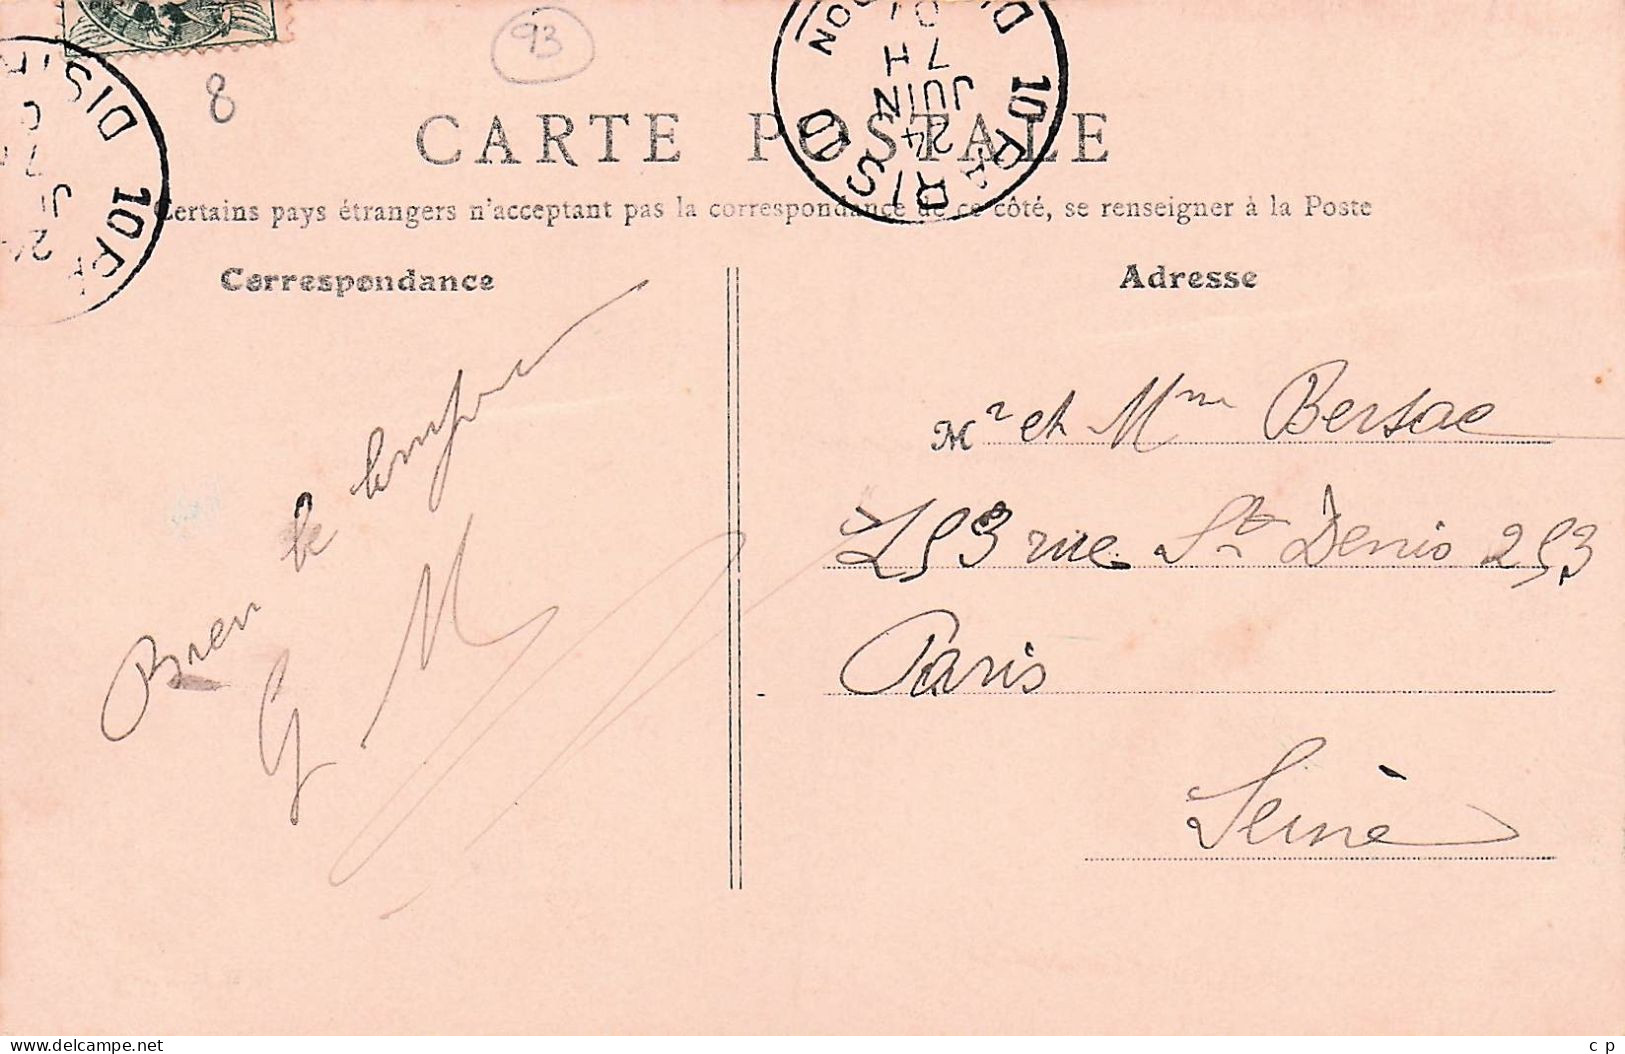 93
8
CARTE POSTALE
Certains pays étrangers n'acceptant pas la correspondance de ce côté, se renseigner à la Poste
Correspondance
Adresse
Bien le bonjour
G M
Mr et Mme Bersac
253 rue St Denis 253
Paris
Seine
DISON
10 R
24
JUIN
7 H
DISON
10 R
delcampe.net
c p